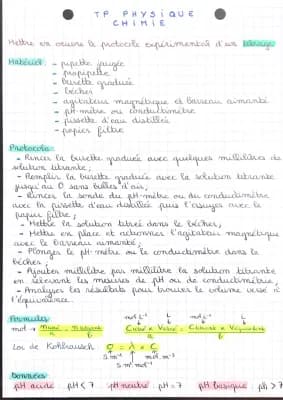 TP PHYSIQUE
CHIMIE
Mettre en œuvre le protocole expérimental d'un titrage
Matériel : - pipette jaugée
- propipette
- burette graduée
- bécher
- agitateur magnétique et barreau aimanté
- pH-mètre ou conductimètre
- pissette d'eau distillée
- papier filtre
Protocole :
- Rincer la burette graduée avec quelques millilitres de
solution titrante ;
- Remplir la burette graduée avec la solution titrante
jusqu'au 0 sans bulles d'air ;
- Rincer la sonde du pH-mètre ou du conductimètre
avec la pissette d'eau distillée puis l'essuyer avec le
papier filtre ;
- Mettre la solution titrée dans le bécher ;
- Mettre en place et actionner l'agitateur magnétique
avec le barreau aimanté ;
- Plonger le pH-mètre ou le conductimètre dans le
bécher ;
- Ajouter millilitre par millilitre la solution titrante
en relevant les mesures de pH ou de conductimètre ;
- Analyser les résultats pour trouver le volume versé à
l'équivalence.
Formules
mol.L⁻¹ L mol.L⁻¹ L
mol →
a b a b
Loi de Kohlrausch σ = λ × C
S.m⁻¹ mol.m⁻³
S.m².mol⁻¹
Données
pH acide : pH < 7 pH neutre : pH = 7 pH basique : pH > 7